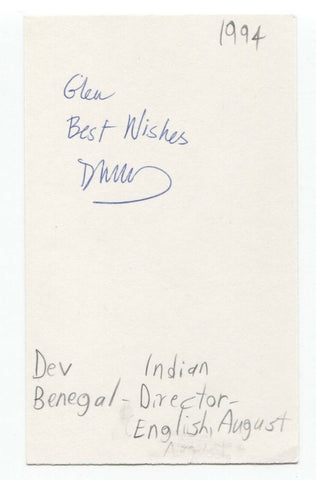 1994
Glen
Best Wishes
Dev Indian
Benegal - Director-
English, August